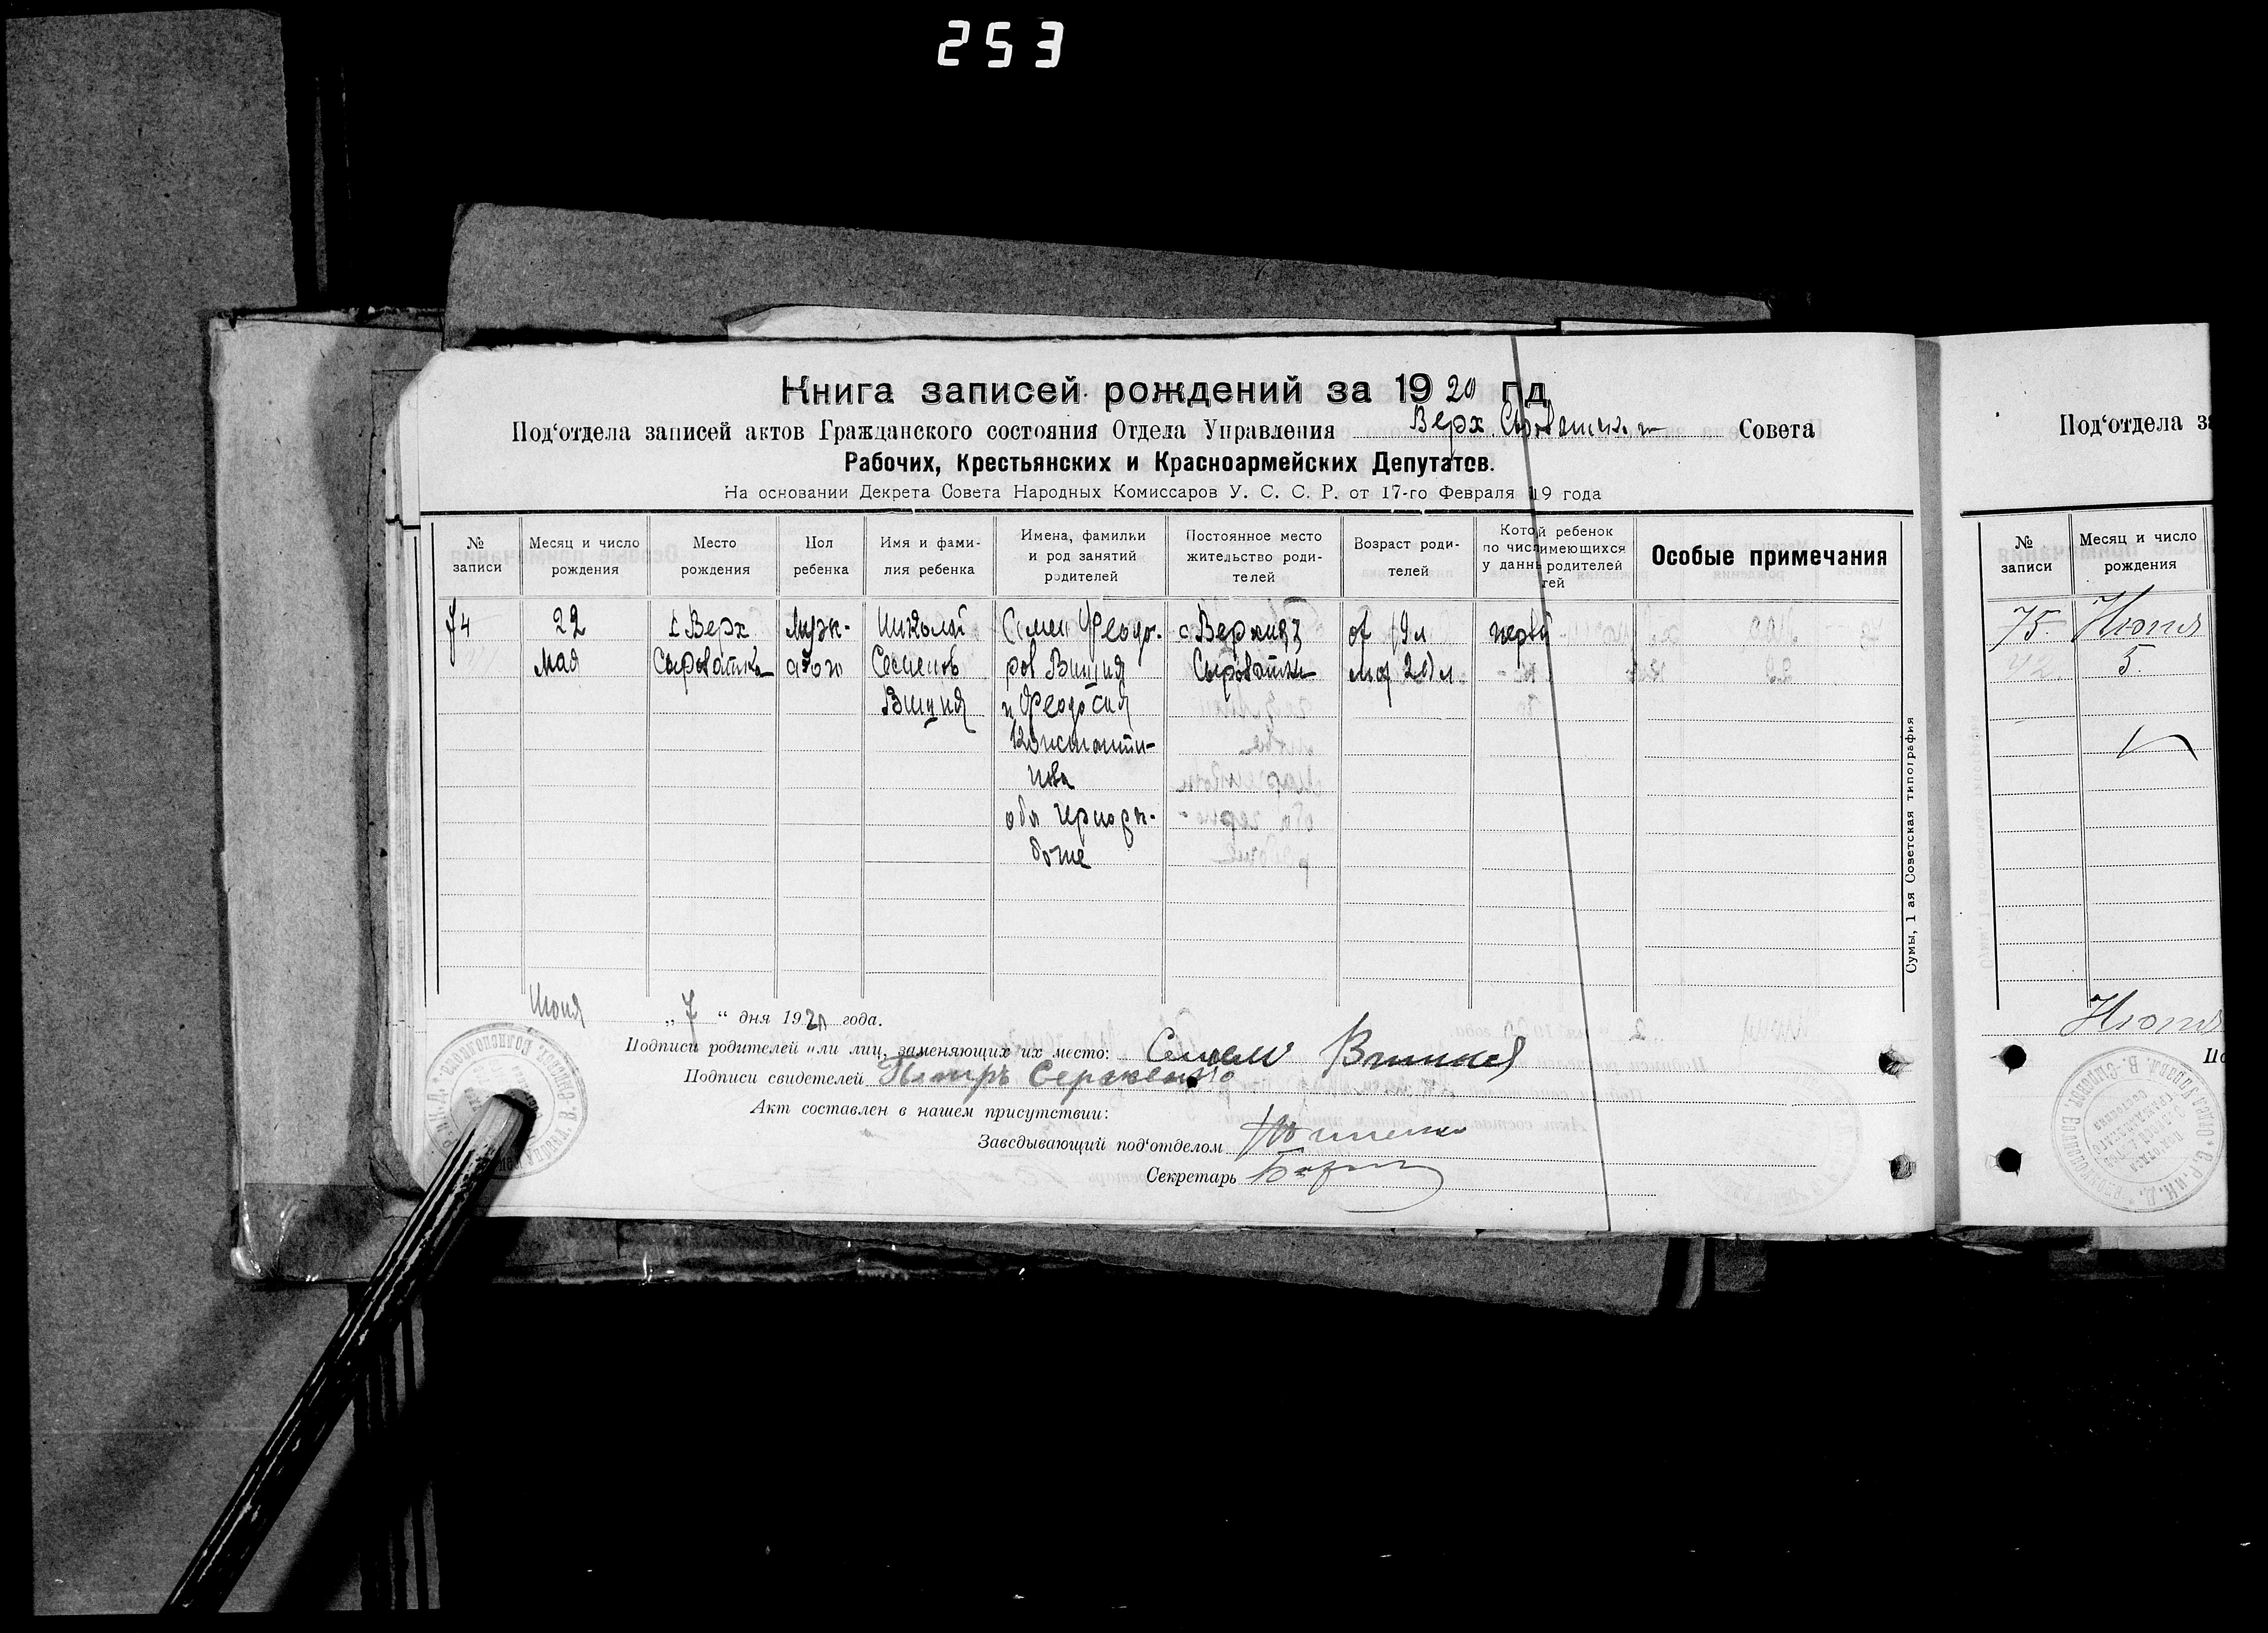 253
Книга записей рождений за 1920 г д
Под‘отдела записей актов Гражданского состояния Отдела Управления Верх. Совета
Рабочих, Крестьянских и Красноармейских Депутатов.
На основании Декрета Совета Народных Комиссаров У. С. С. Р. от 17-го Февраля 19 года
№ записи
Месяц и число рождения
Место рождения
Пол ребенка
Имя и фами-
лия ребенка
Имена, фамилии
и род занятий
родителей
Постоянное место
жительство роди-
телей
Возраст роди-
телей
Котой ребенок
по числимеющихся
у даннь родителей
тей
Особые примечания
74
22
мая
с Верх
Сыроватка
Муж-
ского
Николай
Семенов
Вишня
Семен Феодо-
ров Вишня
и Феодосия
Константи-
нова
оба черно р-
бочие
с Верхняя
Сыроватки
от 19 л
мат 20 л.
первый
Сумы, 1 ая Советская типография
Июня „ 7 “ дня 1920 года.
Подписи родителей или лиц, заменяющих их место: Семен Вишня
Подписи свидетелей Петръ Сергиенко
Акт составлен в нашем присутствии:
Заведывающий под‘отделом
Секретарь
Под‘отдела
№ записи
Месяц и число
рождения
75.
Июня
5.
Июня